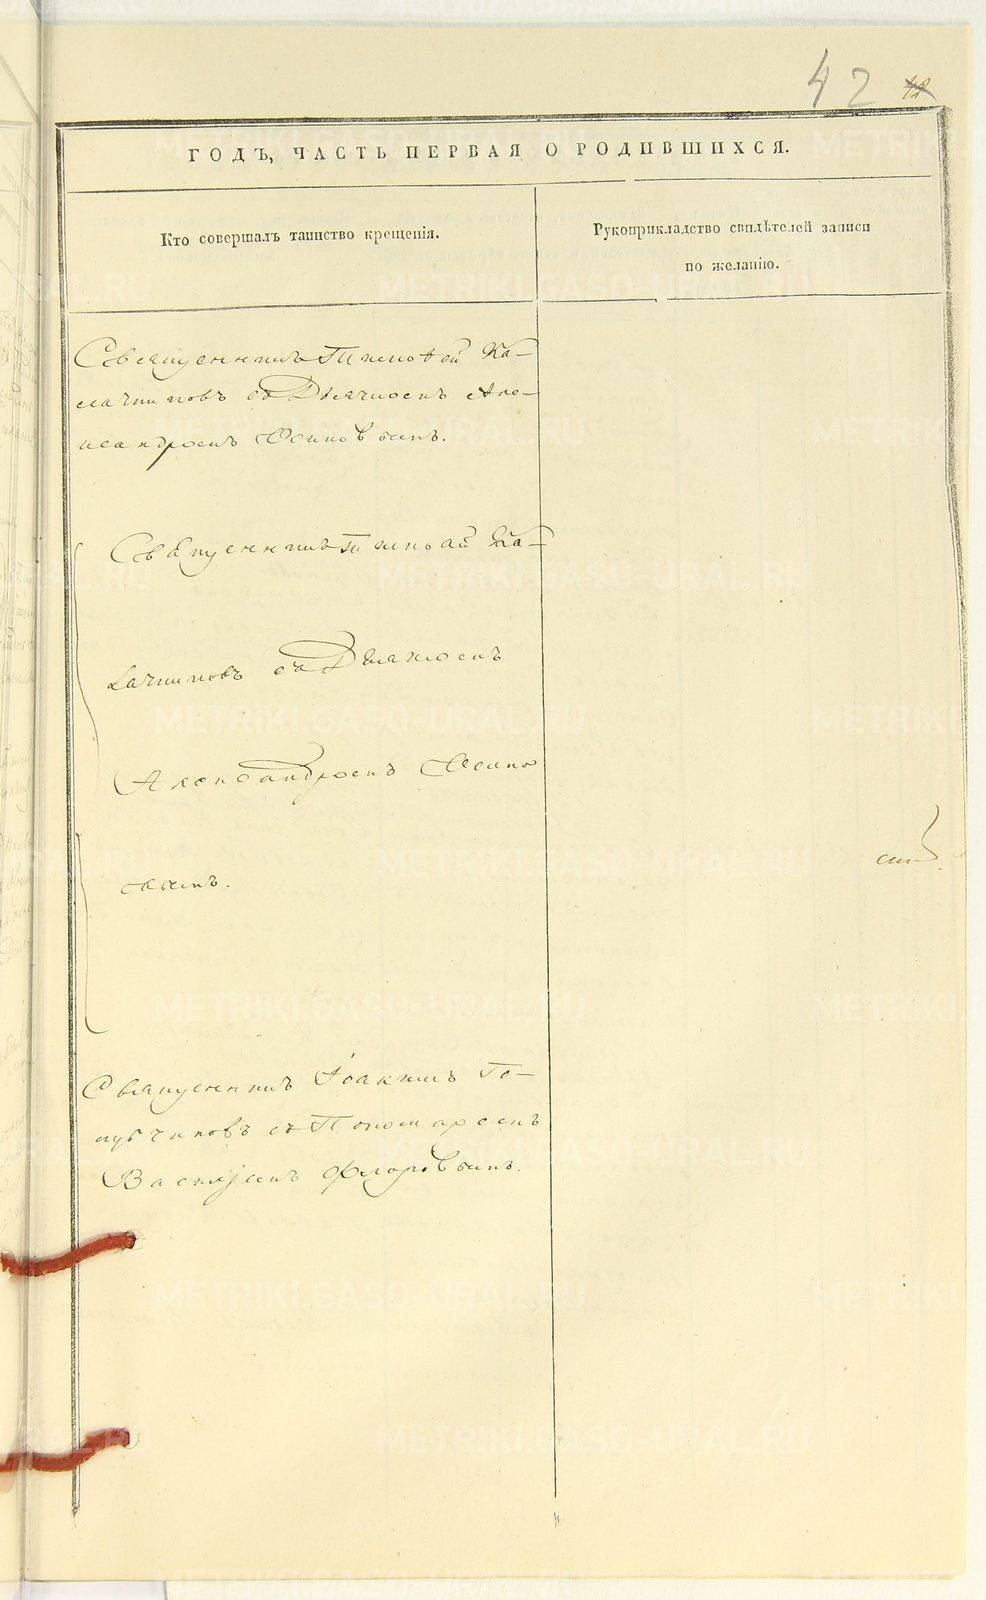 42 42
ГОДЪ, ЧАСТЬ ПЕРВАЯ О РОДИВШИХСЯ.
Кто совершалъ таинство крещенія.
Рукоприкладство свидѣтелей записи
по желанію.
Священникъ Тимофей Ка-
лачниковъ съ Дьячкомъ Але-
ксандромъ Осиповымъ.
Священникъ Тимофей Ка-
лачниковъ съ Дьячкомъ
Александромъ Осипо
вымъ.
Священникъ Іоакимъ
съ Пономаремъ
Василіемъ Флоровымъ.
METRIKI.GASO-URAL.RU